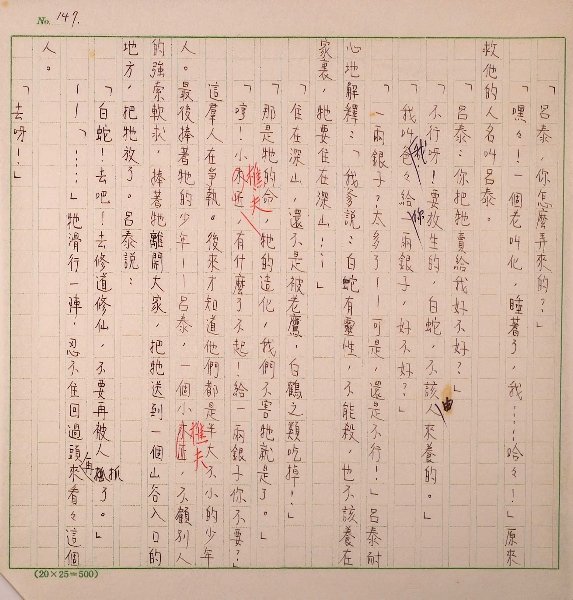 No. 147.
「呂泰，你怎麼弄來的？」
「嘿々！一個老叫化，睡著了，我……哈々！」原來
救他的人名叫呂泰。
「呂泰：你把牠賣給我好不好？」
「不行呀！要放生的，白蛇 不該由人來養的。」
「我叫我爸々給你一兩銀子，好不好？」
「一兩銀子？太多了！可是，還是不行！」呂泰耐
心地解釋：「我爹說：白蛇有靈性，不能殺，也不該養在
家裏，牠要住在深山……」
「住在深山，還不是被老鷹，白鶴之類吃掉！」
「那是牠的命，牠的造化，我們不害牠就是了。」
「哼！小樵夫，有什麼了不起！給一兩銀子你不要？」
這羣人在爭執。後來才知道他們都是半大不小的少年
人。最後捧著牠的少年！——呂泰，一個小樵夫，不顧別人
的強索軟求，捧著牠離開大家，把牠送到一個山谷入口的
地方，把牠放了。呂泰說：
「白蛇！去吧！去修道修仙，不要再被人抓了。」
——「……」牠滑行一陣，忍不住回過頭來再看々這個
人。
「去呀！」
(20×25=500)